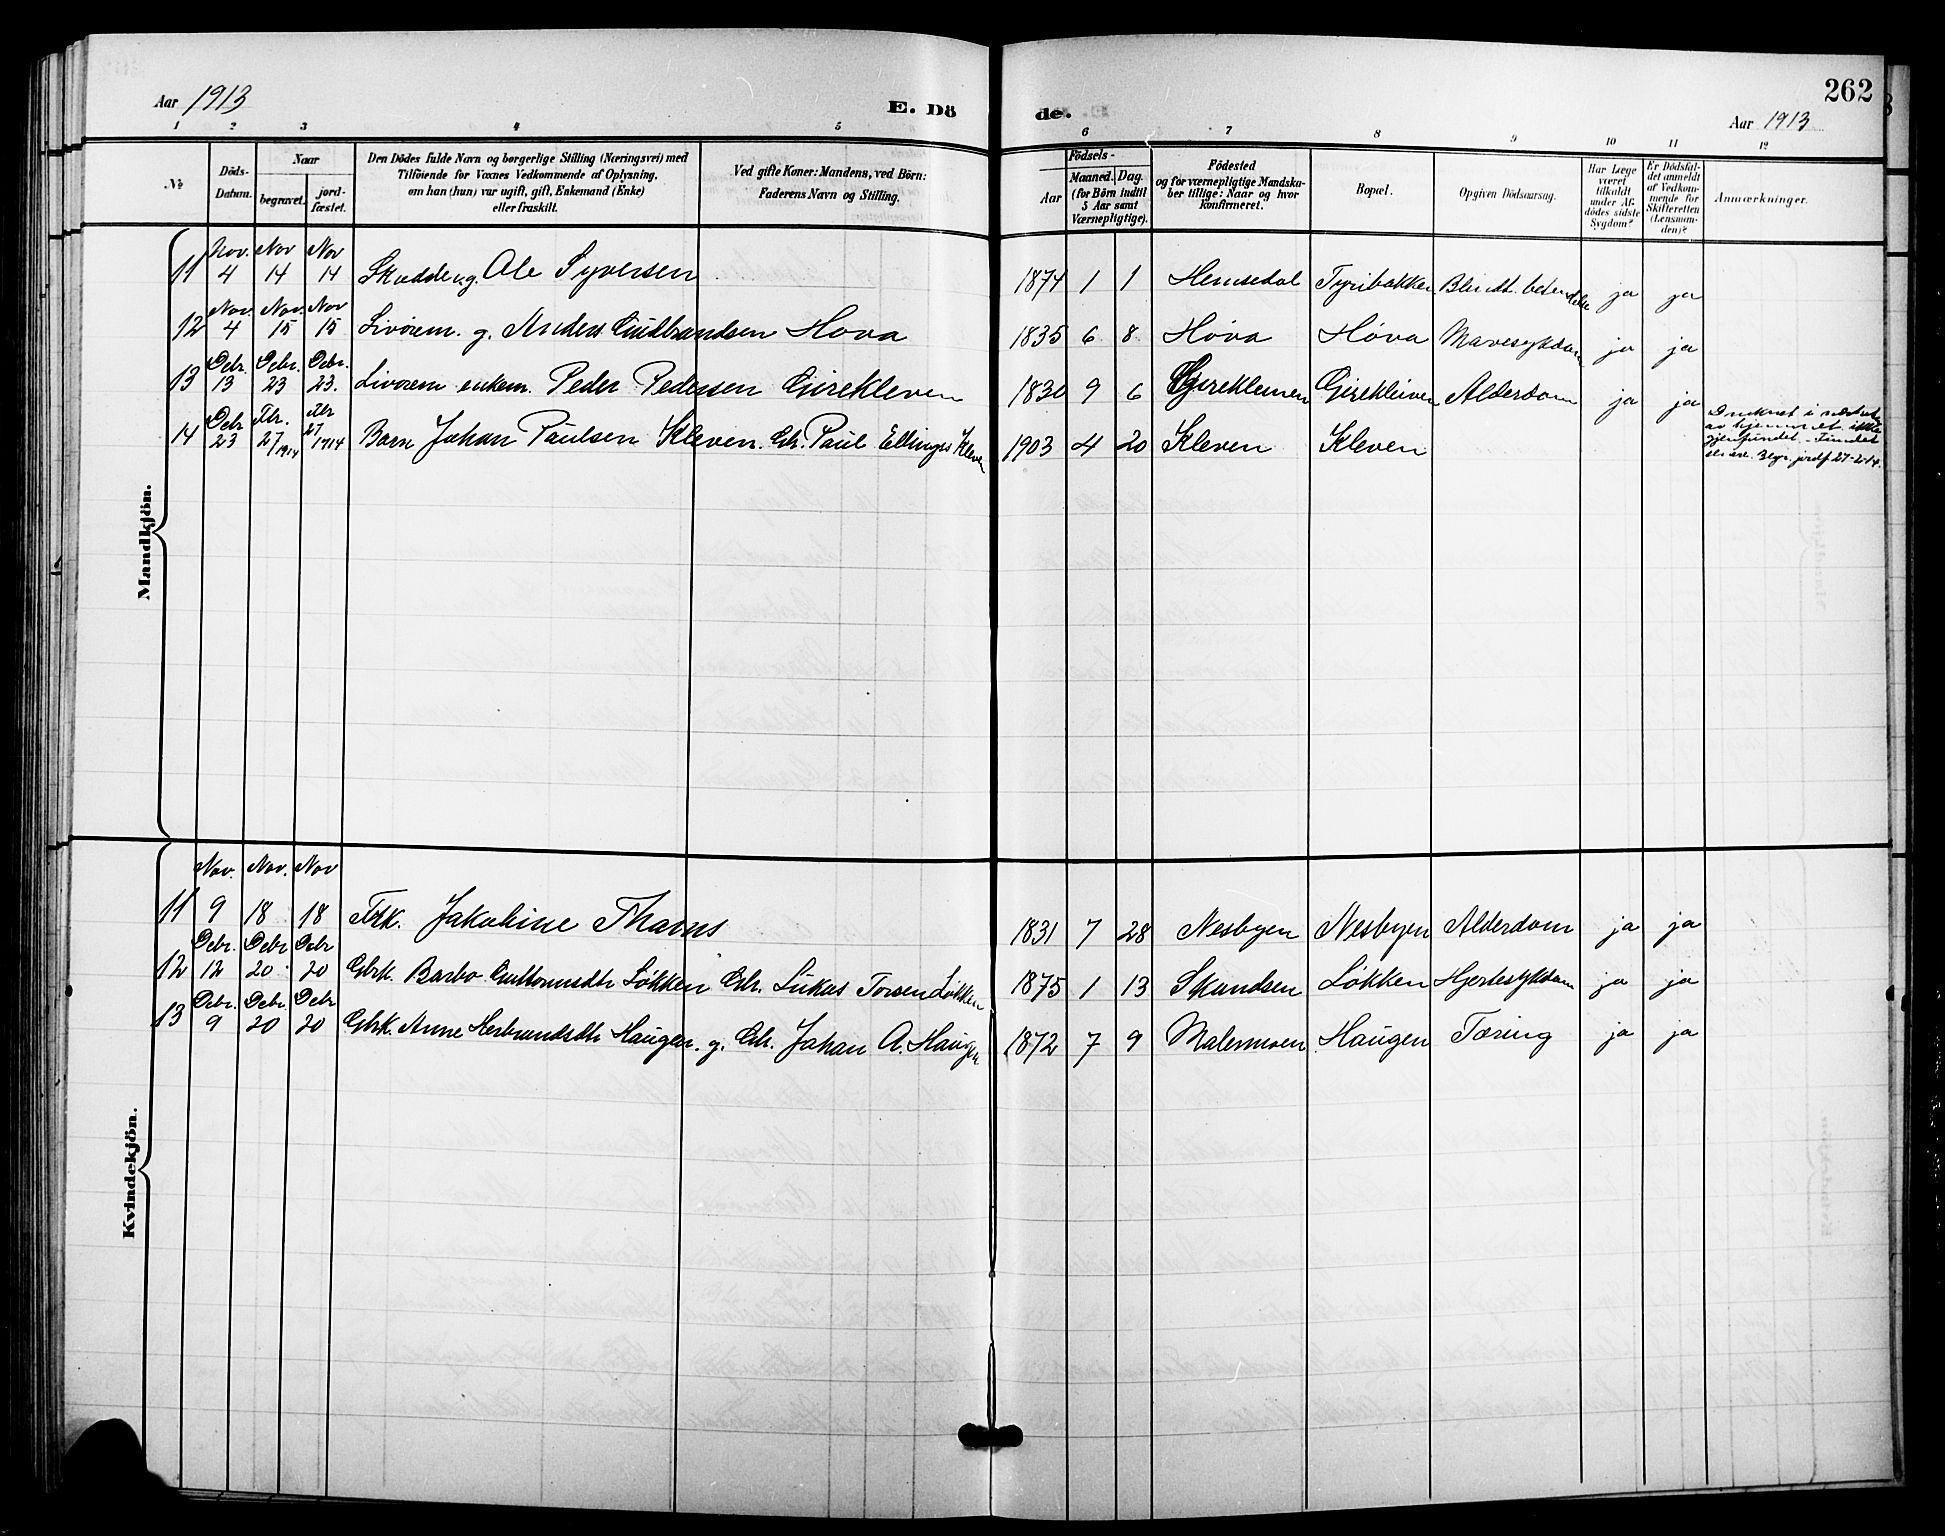 Aar 1913 E. Dö de. Aar 1913 262
1 2 3 4 5 6 7 8 9 10 11 12
№ Döds-Datum. Naar begravet. jord-fæstet. Den Dödes fulde Navn og borgerlige Stilling (Næringsvei) med Tilföiende for Voxnes Vedkommende af Oplysning, om han (hun) var ugift, gift, Enkemand (Enke) eller fraskilt. Ved gifte Koner: Mandens, ved Börn: Faderens Navn og Stilling. Födsels- Aar Maaned. Dag. (for Börn indtil 5 Aar samt Værnepligtige). Födested og for værnepligtige Mandskaber tillige: Naar og hvor konfirmeret. Bopæl. Opgiven Dödsaarsag. Har Læge været tilkaldt under Afdödes sidste Sygdom? Er Dödsfaldet anmeldt af Vedkommende for Skifteretten (Lensmanden)? Anmærkninger.
Mandkjön.
11 Nov. 4 Nov 14 Nov 14 Ole Syversen 1874 1 1 Hemsedal Tyribakken ja ja
12 Nov. 4 Nov. 15 Nov 15 Livörem. g. Anders Gudbrandsen Hova 1835 6 8 Höva Höva Mavesykdom ja ja
13 Debr. 13 Debr. 23 Debr. 23. Livörem enkem. Peder Pedersen Girekleven 1830 9 6 Girekleiven Alderdom ja ja
14 Debr 23 Fbr. 27 1914 Fbr 27 1914 Barn Johan Paulsen Kleven. Gbr. Paul Ellingss Kleven 1903 4 20 Kleven Kleven Druknet i nærhet av hjemmet. ikke gjenfundet. Fundet Begr. jordf. 27-2-14.
Kvindekjön.
11 Nov. 9 Nov. 18 Nov 18 Frk. Jakobine Thams 1831 7 28 Nesbyen Nesbyen Alderdom ja ja
12 Debr. 12 Debr 20 Debr 20 Gbrk. Barbo Guttormsdtr Lökken Gbr. Lukas Torsen Lökken 1875 1 13 Skundsen Lökken Hjertesykdom ja ja
13 Debr. 9 Debr. 20 Debr 20 Gbrk Anne Herbrandsdtr Haugen. g. Gbr. Johan A. Haugen 1872 7 9 Malermoen Haugen Tæring ja ja